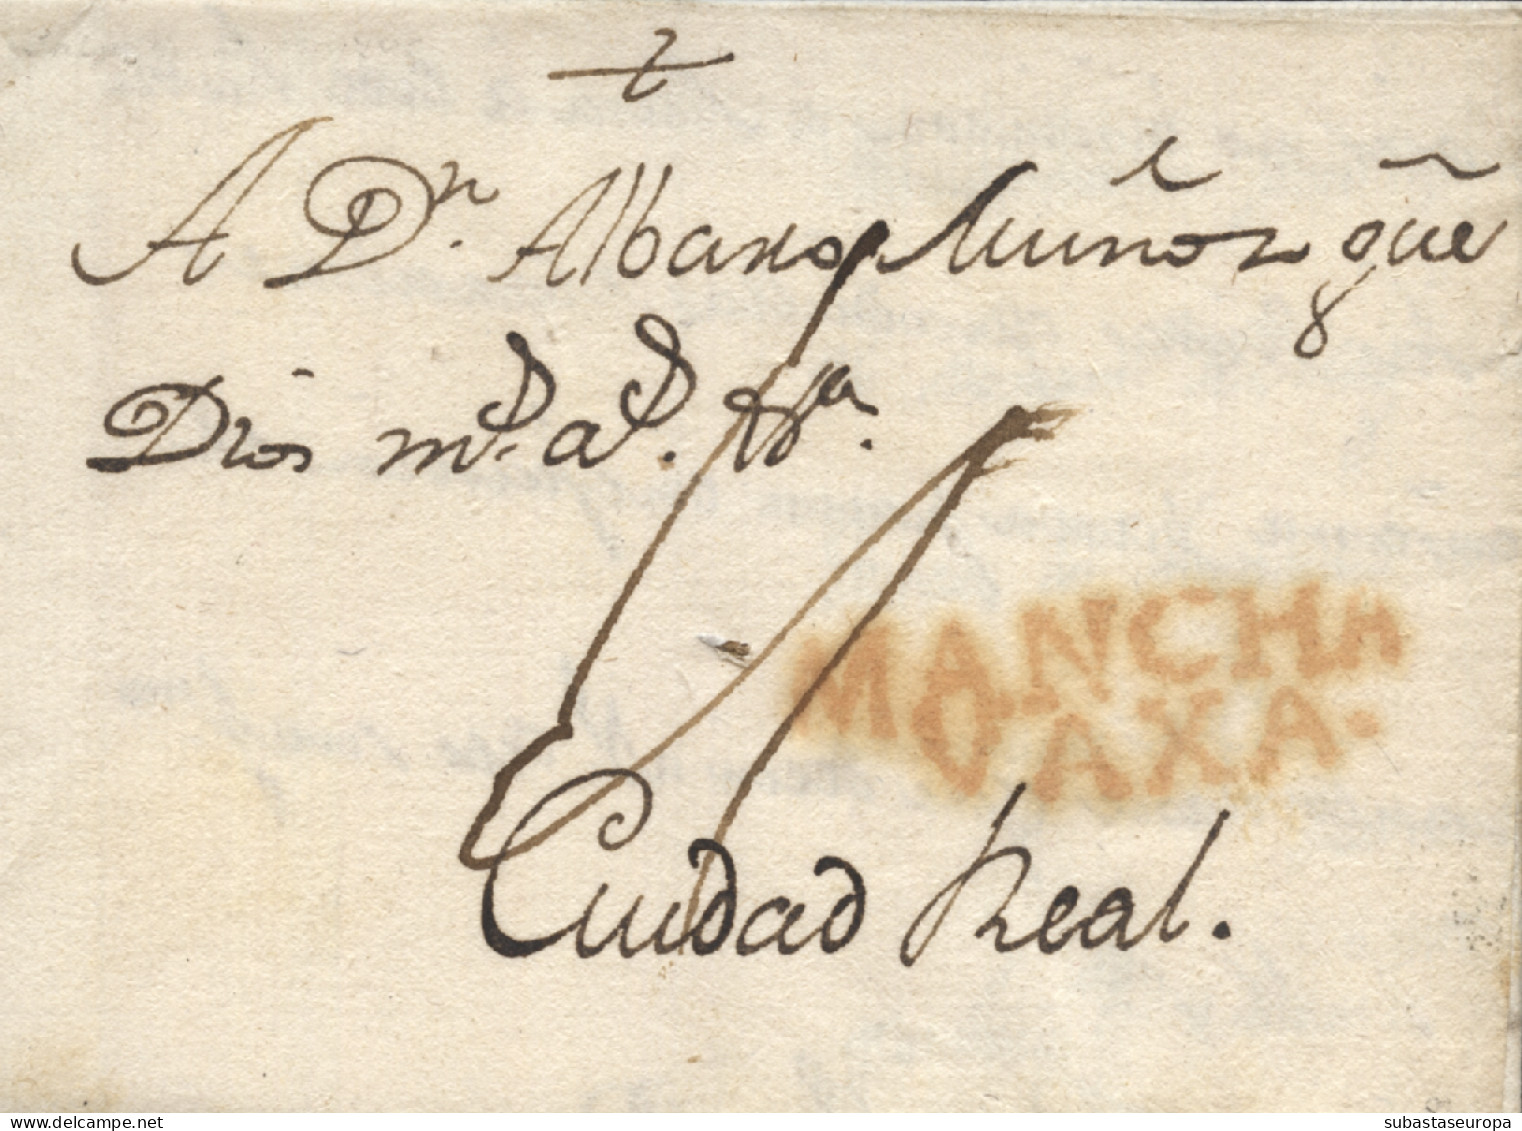 A Dn. Albaro Muñoz que
Dios ms. as. 
MANCHA
BAXA.
Ciudad Real.
subastaseuropa